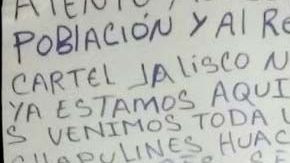 ATENTO
POBlACIÓN Y Al RE
CARTEL JAlisco N
YA ESTAMOS AQUI
S VENIMOS TODA
CHAPULINES HUAC